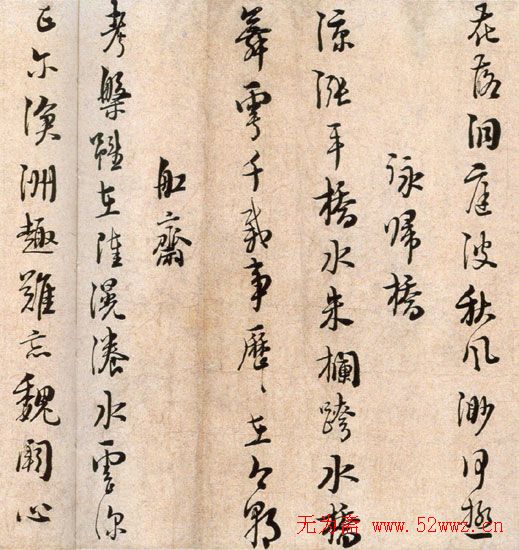 花落洞庭波秋風渺何極
詠歸橋
涼漲平橋水朱欄跨水橋
舞雩千載事歷歷在今朝
船齋
考槃雖在陸滉瀁水雲深
正尔滄洲趣難忘魏闕心
无为斋 www.52wwz.cn